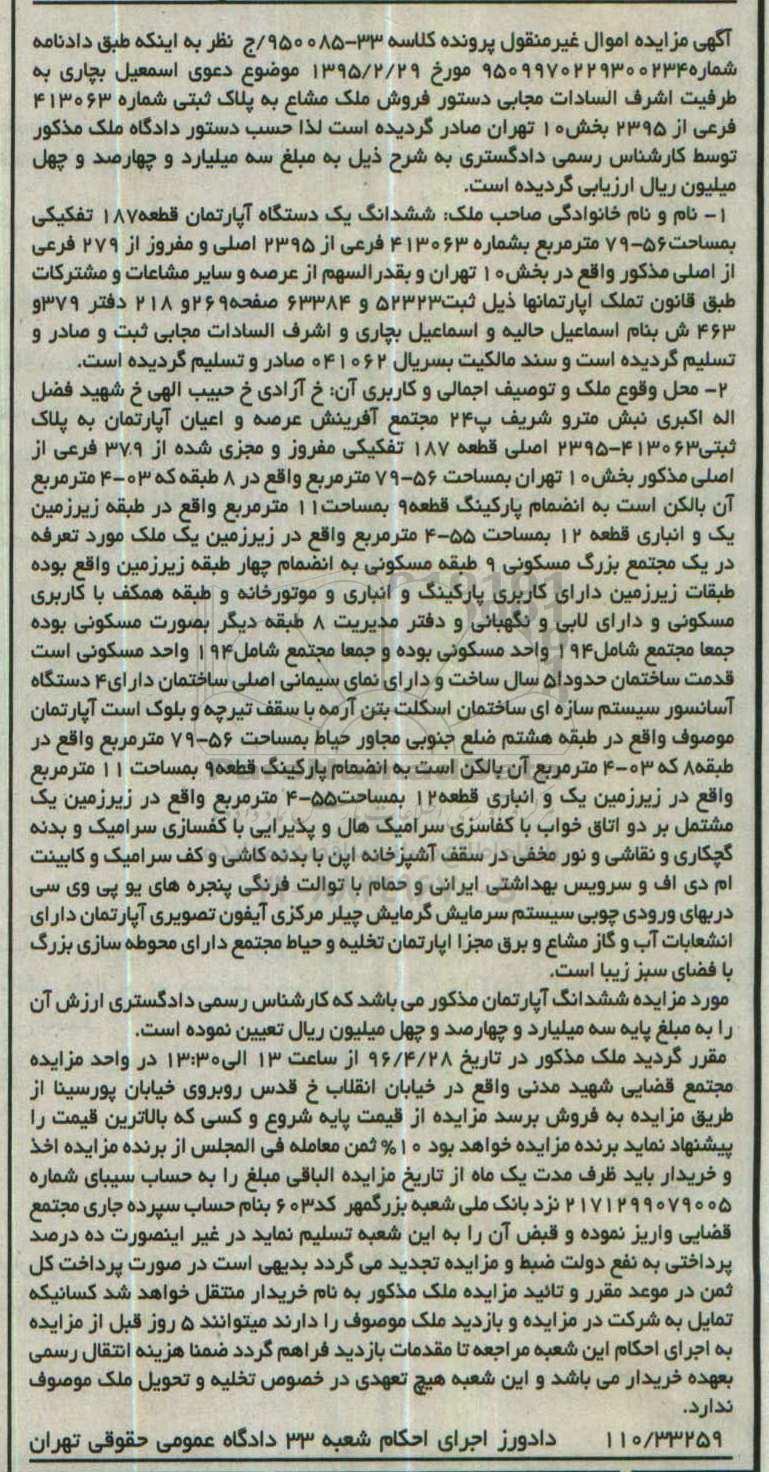 آگهی مزایده اموال غیرمنقول پرونده کلاسه ۳۳-۹۵۰۰۸۵/ج نظر به اینکه طبق دادنامه
شماره۹۵۰۹۹۷۰۲۲۹۳۰۰۲۳۴ مورخ ۱۳۹۵/۲/۲۹ موضوع دعوی اسمعیل بچاری به
طرفیت اشرف السادات مجابی دستور فروش ملک مشاع به پلاک ثبتی شماره ۴۱۳۰۶۳
فرعی از ۲۳۹۵ بخش۱۰ تهران صادر گردیده است لذا حسب دستور دادگاه ملک مذکور
توسط کارشناس رسمی دادگستری به شرح ذیل به مبلغ سه میلیارد و چهارصد و چهل
میلیون ریال ارزیابی گردیده است.
۱- نام و نام خانوادگی صاحب ملک: ششدانگ یک دستگاه آپارتمان قطعه۱۸۷ تفکیکی
بمساحت۵۶-۷۹ مترمربع بشماره ۴۱۳۰۶۳ فرعی از ۲۳۹۵ اصلی و مفروز از ۲۷۹ فرعی
از اصلی مذکور واقع در بخش۱۰ تهران و بقدرالسهم از عرصه و سایر مشاعات و مشترکات
طبق قانون تملک اپارتمانها ذیل ثبت۵۲۳۲۳ و ۶۳۳۸۴ صفحه۲۶۹و ۲۱۸ دفتر ۳۷۹و
۴۶۳ ش بنام اسماعیل حالیه و اسماعیل بچاری و اشرف السادات مجابی ثبت و صادر و
تسلیم گردیده است و سند مالکیت بسریال ۰۴۱۰۶۲ صادر و تسلیم گردیده است.
۲- محل وقوع ملک و توصیف اجمالی و کاربری آن: خ آزادی خ حبیب الهی خ شهید فضل
اله اکبری نبش مترو شریف پ۲۴ مجتمع آفرینش عرصه و اعیان آپارتمان به پلاک
ثبتی۴۱۳۰۶۳-۲۳۹۵ اصلی قطعه ۱۸۷ تفکیکی مفروز و مجزی شده از ۳۷۹ فرعی از
اصلی مذکور بخش۱۰ تهران بمساحت ۵۶-۷۹ مترمربع واقع در ۸ طبقه که ۰۳-۴ مترمربع
آن بالکن است به انضمام پارکینگ قطعه۹ بمساحت۱۱ مترمربع واقع در طبقه زیرزمین
یک و انباری قطعه ۱۲ بمساحت ۵۵-۴ مترمربع واقع در زیرزمین یک ملک مورد تعرفه
در یک مجتمع بزرگ مسکونی ۹ طبقه مسکونی به انضمام چهار طبقه زیرزمین واقع بوده
طبقات زیرزمین دارای کاربری پارکینگ و انباری و موتورخانه و طبقه همکف با کاربری
مسکونی و دارای لابی و نگهبانی و دفتر مدیریت ۸ طبقه دیگر بصورت مسکونی بوده
جمعا مجتمع شامل۱۹۴ واحد مسکونی بوده و جمعا مجتمع شامل۱۹۴ واحد مسکونی است
قدمت ساختمان حدودا۵ سال ساخت و دارای نمای سیمانی اصلی ساختمان دارای۴ دستگاه
آسانسور سیستم سازه ای ساختمان اسکلت بتن آرمه با سقف تیرچه و بلوک است آپارتمان
موصوف واقع در طبقه هشتم ضلع جنوبی مجاور حیاط بمساحت ۵۶-۷۹ مترمربع واقع در
طبقه۸ که ۰۳-۴ مترمربع آن بالکن است به انضمام پارکینگ قطعه۹ بمساحت ۱۱ مترمربع
واقع در زیرزمین یک و انباری قطعه۱۲ بمساحت۵۵-۴ مترمربع واقع در زیرزمین یک
مشتمل بر دو اتاق خواب با کفاسزی سرامیک هال و پذیرایی با کفسازی سرامیک و بدنه
گچکاری و نقاشی و نور مخفی در سقف آشپزخانه اپن با بدنه کاشی و کف سرامیک و کابینت
ام دی اف و سرویس بهداشتی ایرانی و حمام با توالت فرنگی پنجره های یو پی وی سی
دربهای ورودی چوبی سیستم سرمایش گرمایش چیلر مرکزی آیفون تصویری آپارتمان دارای
انشعابات آب و گاز مشاع و برق مجزا اپارتمان تخلیه و حیاط مجتمع دارای محوطه سازی بزرگ
با فضای سبز زیبا است.
مورد مزایده ششدانگ آپارتمان مذکور می باشد که کارشناس رسمی دادگستری ارزش آن
را به مبلغ پایه سه میلیارد و چهارصد و چهل میلیون ریال تعیین نموده است.
مقرر گردید ملک مذکور در تاریخ ۹۶/۴/۲۸ از ساعت ۱۳ الی۱۳:۳۰ در واحد مزایده
مجتمع قضایی شهید مدنی واقع در خیابان انقلاب خ قدس روبروی خیابان پورسینا از
طریق مزایده به فروش برسد مزایده از قیمت پایه شروع و کسی که بالاترین قیمت را
پیشنهاد نماید برنده مزایده خواهد بود ۱۰% ثمن معامله فی المجلس از برنده مزایده اخذ
و خریدار باید ظرف مدت یک ماه از تاریخ مزایده الباقی مبلغ را به حساب سیبای شماره
۲۱۷۱۲۹۹۰۷۹۰۰۵ نزد بانک ملی شعبه بزرگمهر کد۶۰۳ بنام حساب سپرده جاری مجتمع
قضایی واریز نموده و قبض آن را به این شعبه تسلیم نماید در غیر اینصورت ده درصد
پرداختی به نفع دولت ضبط و مزایده تجدید می گردد بدیهی است در صورت پرداخت کل
ثمن در موعد مقرر و تائید مزایده ملک مذکور به نام خریدار منتقل خواهد شد کسانیکه
تمایل به شرکت در مزایده و بازدید ملک موصوف را دارند میتوانند ۵ روز قبل از مزایده
به اجرای احکام این شعبه مراجعه تا مقدمات بازدید فراهم گردد ضمنا هزینه انتقال رسمی
بعهده خریدار می باشد و این شعبه هیچ تعهدی در خصوص تخلیه و تحویل ملک موصوف
ندارد.
۱۱۰/۳۳۲۵۹ دادورز اجرای احکام شعبه ۳۳ دادگاه عمومی حقوقی تهران